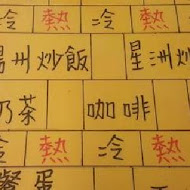 冷 熱 冷 熱
州炒飯 星洲炒
奶茶 咖啡
熱 冷 熱
蛋